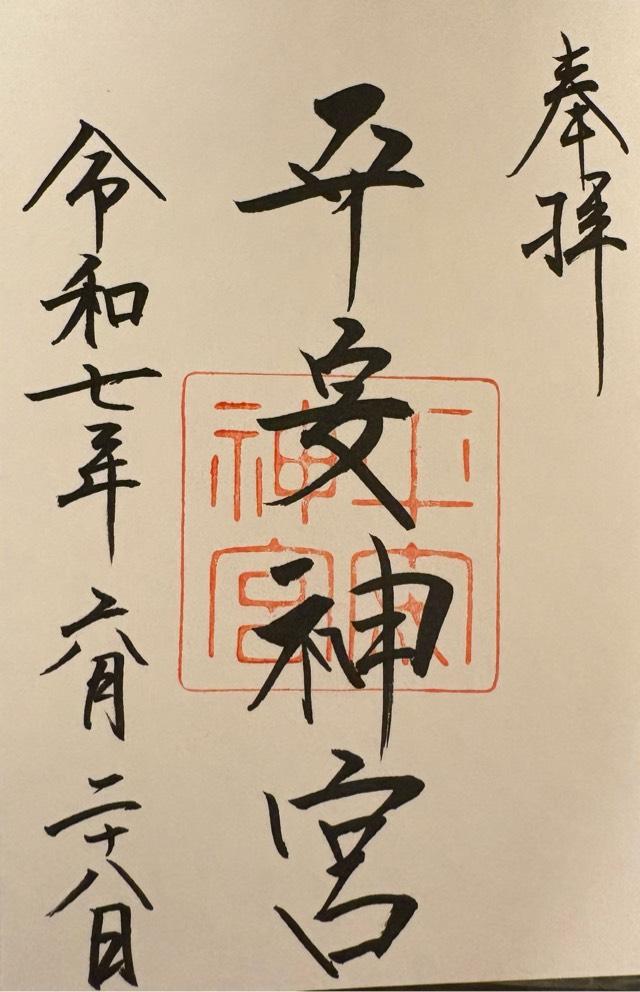 奉拝
平安神宮
平安神宮
令和七年六月二十八日